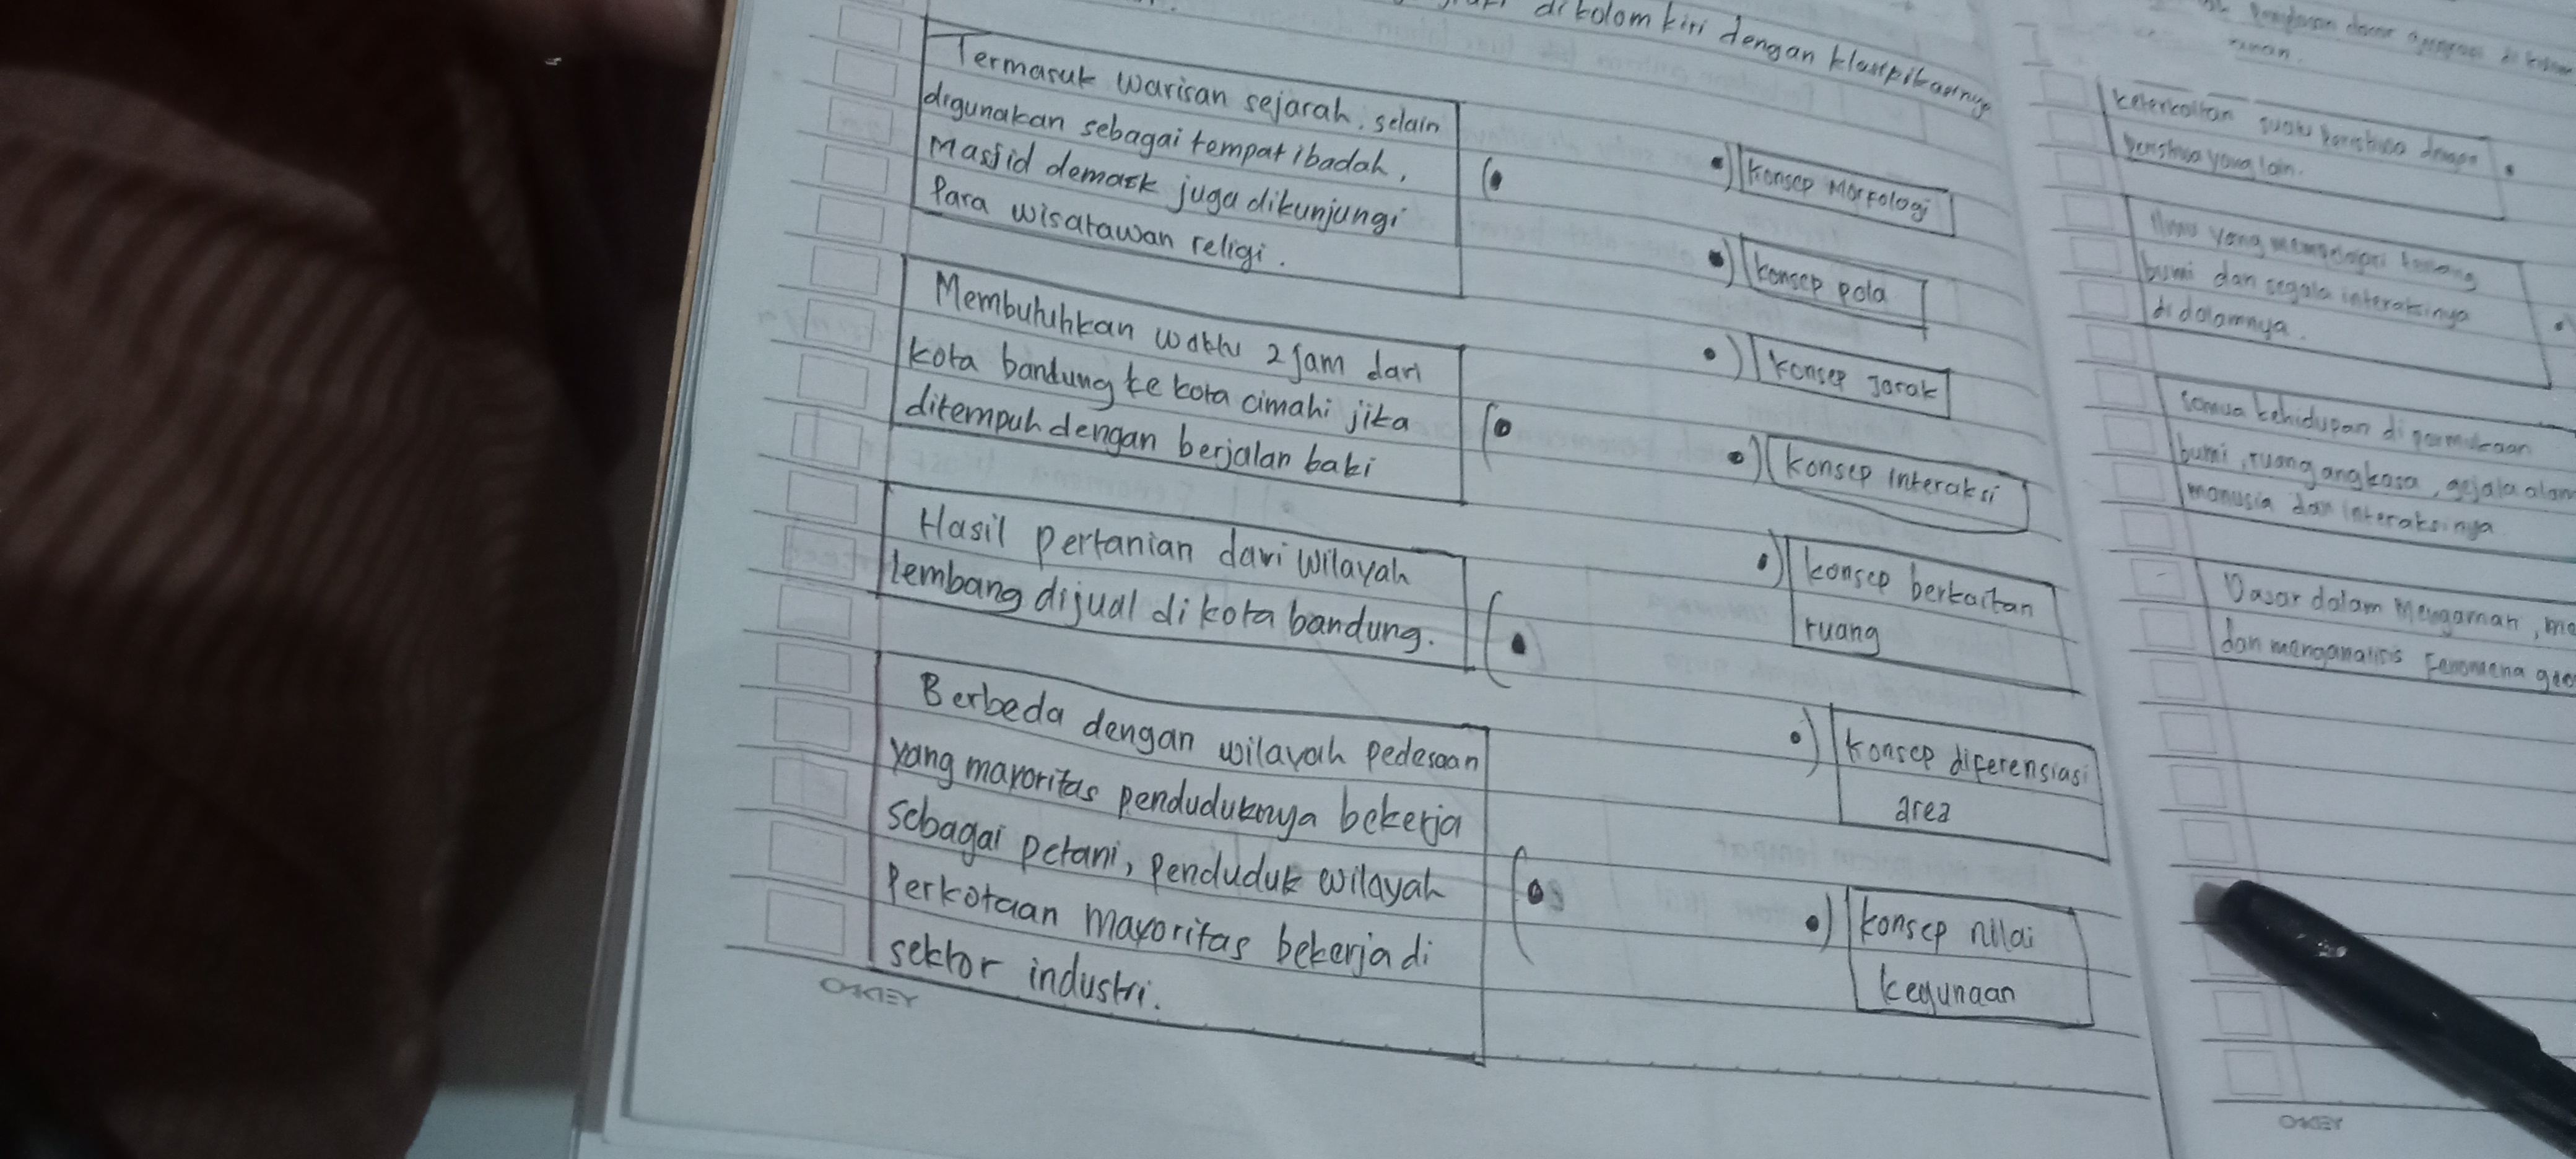 di kolom kiri dengan klasipikasinya
Termasuk warisan sejarah, selain
digunakan sebagai tempat ibadah,
Masjid demak juga dikunjungi
Para wisatawan religi.
Membutuhkan waktu 2 jam dari
kota bandung ke kota cimahi jika
ditempuh dengan berjalan baki
Hasil pertanian dari wilayah
lembang dijual di kota bandung.
Berbeda dengan wilayah pedesaan
yang mayoritas penduduknya bekerja
sebagai petani, penduduk wilayah
Perkotaan mayoritas bekerja di
sektor industri.
Konsep Morfologi
konsep pola
konsep Jarak
konsep interaksi
konsep berkaitan
ruang
konsep diferensiasi
area
konsep nilai
kegunaan
OAKLEY
keterkaitan suatu peristiwa dengan
peristiwa yang lain.
Ilmu yang mempelajari tentang
bumi dan segala interaksinya
didalamnya.
semua kehidupan di permukaan
bumi, ruang angkasa, gejala alam
manusia dan interaksinya
Dasar dalam
dan menganalisis Fenomena